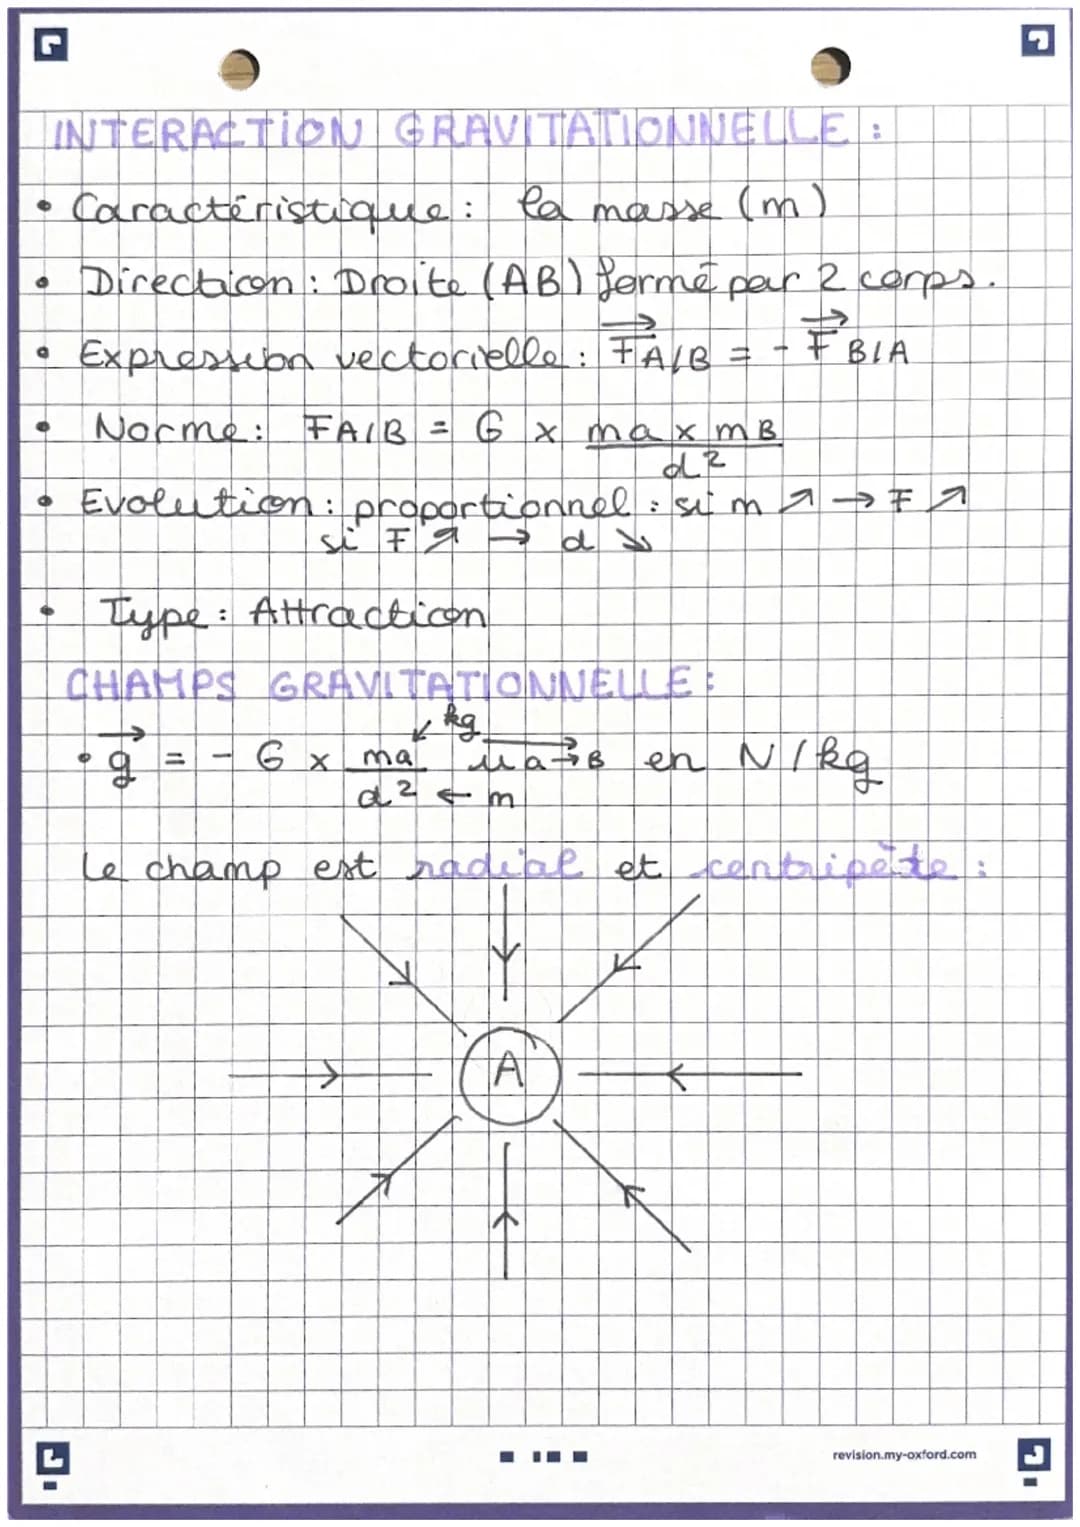 INTERACTION GRAVITATIONNELLE :
• Caractéristique : la masse (m)
• Direction : Droite (AB) formé par 2 corps.
• Expression vectorielle : \overrightarrow{F} A/B = - \overrightarrow{F} B/A
• Norme : FA/B = G × ma × mB / d²
• Evolution : proportionnel : si m ↗ → F ↗
si F ↗ → d ↘
• Type : Attraction
CHAMPS GRAVITATIONNELLE :
↙ kg
• \overrightarrow{g} = - G × ma / d² \overrightarrow{u a→B} en N/kg
← m
Le champ est radial et centripète :
A
revision.my-oxford.com